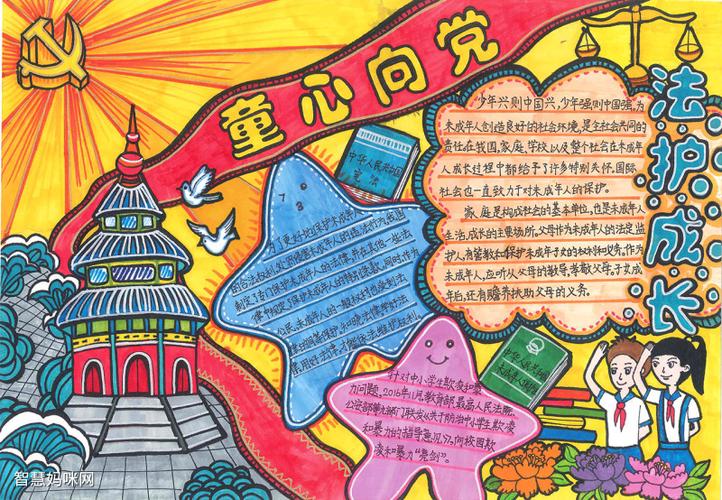 童心向党
法护成长
中华人民共和国
宪法
少年兴则中国兴,少年强则中国强。为
未成年人创造良好的社会环境,是全社会共同的
责任。在我国,家庭、学校以及整个社会在未成年
人成长过程中都给予了许多特别关怀。国际
社会也一直致力于对未成年人的保护。
家庭是构成社会的基本单位,也是未成年人
生活,成长的主要场所。父母作为未成年人的法定监
护人,有管教和保护未成年子女的权利和义务。作为
未成年人,应听从父母的教导,孝敬父母。子女成
年后,还有赡养扶助父母的义务。
为了更好地保护未成年人
的合法权益,
制定了专门保护未成年人的法律,并在其他一些法
律中规定了保护未成年人的特别条款。同时,作为
公民,未成年人的一般权利也受到法
用好法律,才能依法维护权利
中华人民共和国
未成年人保护法
针对中小学生欺凌和暴
力问题,2016年11月,教育部、最高人民法院、
公安部等九部门联合发出关于防治中小学生欺凌
和暴力的指导意见》,向校园欺
凌和暴力“亮剑”。
智慧妈咪网